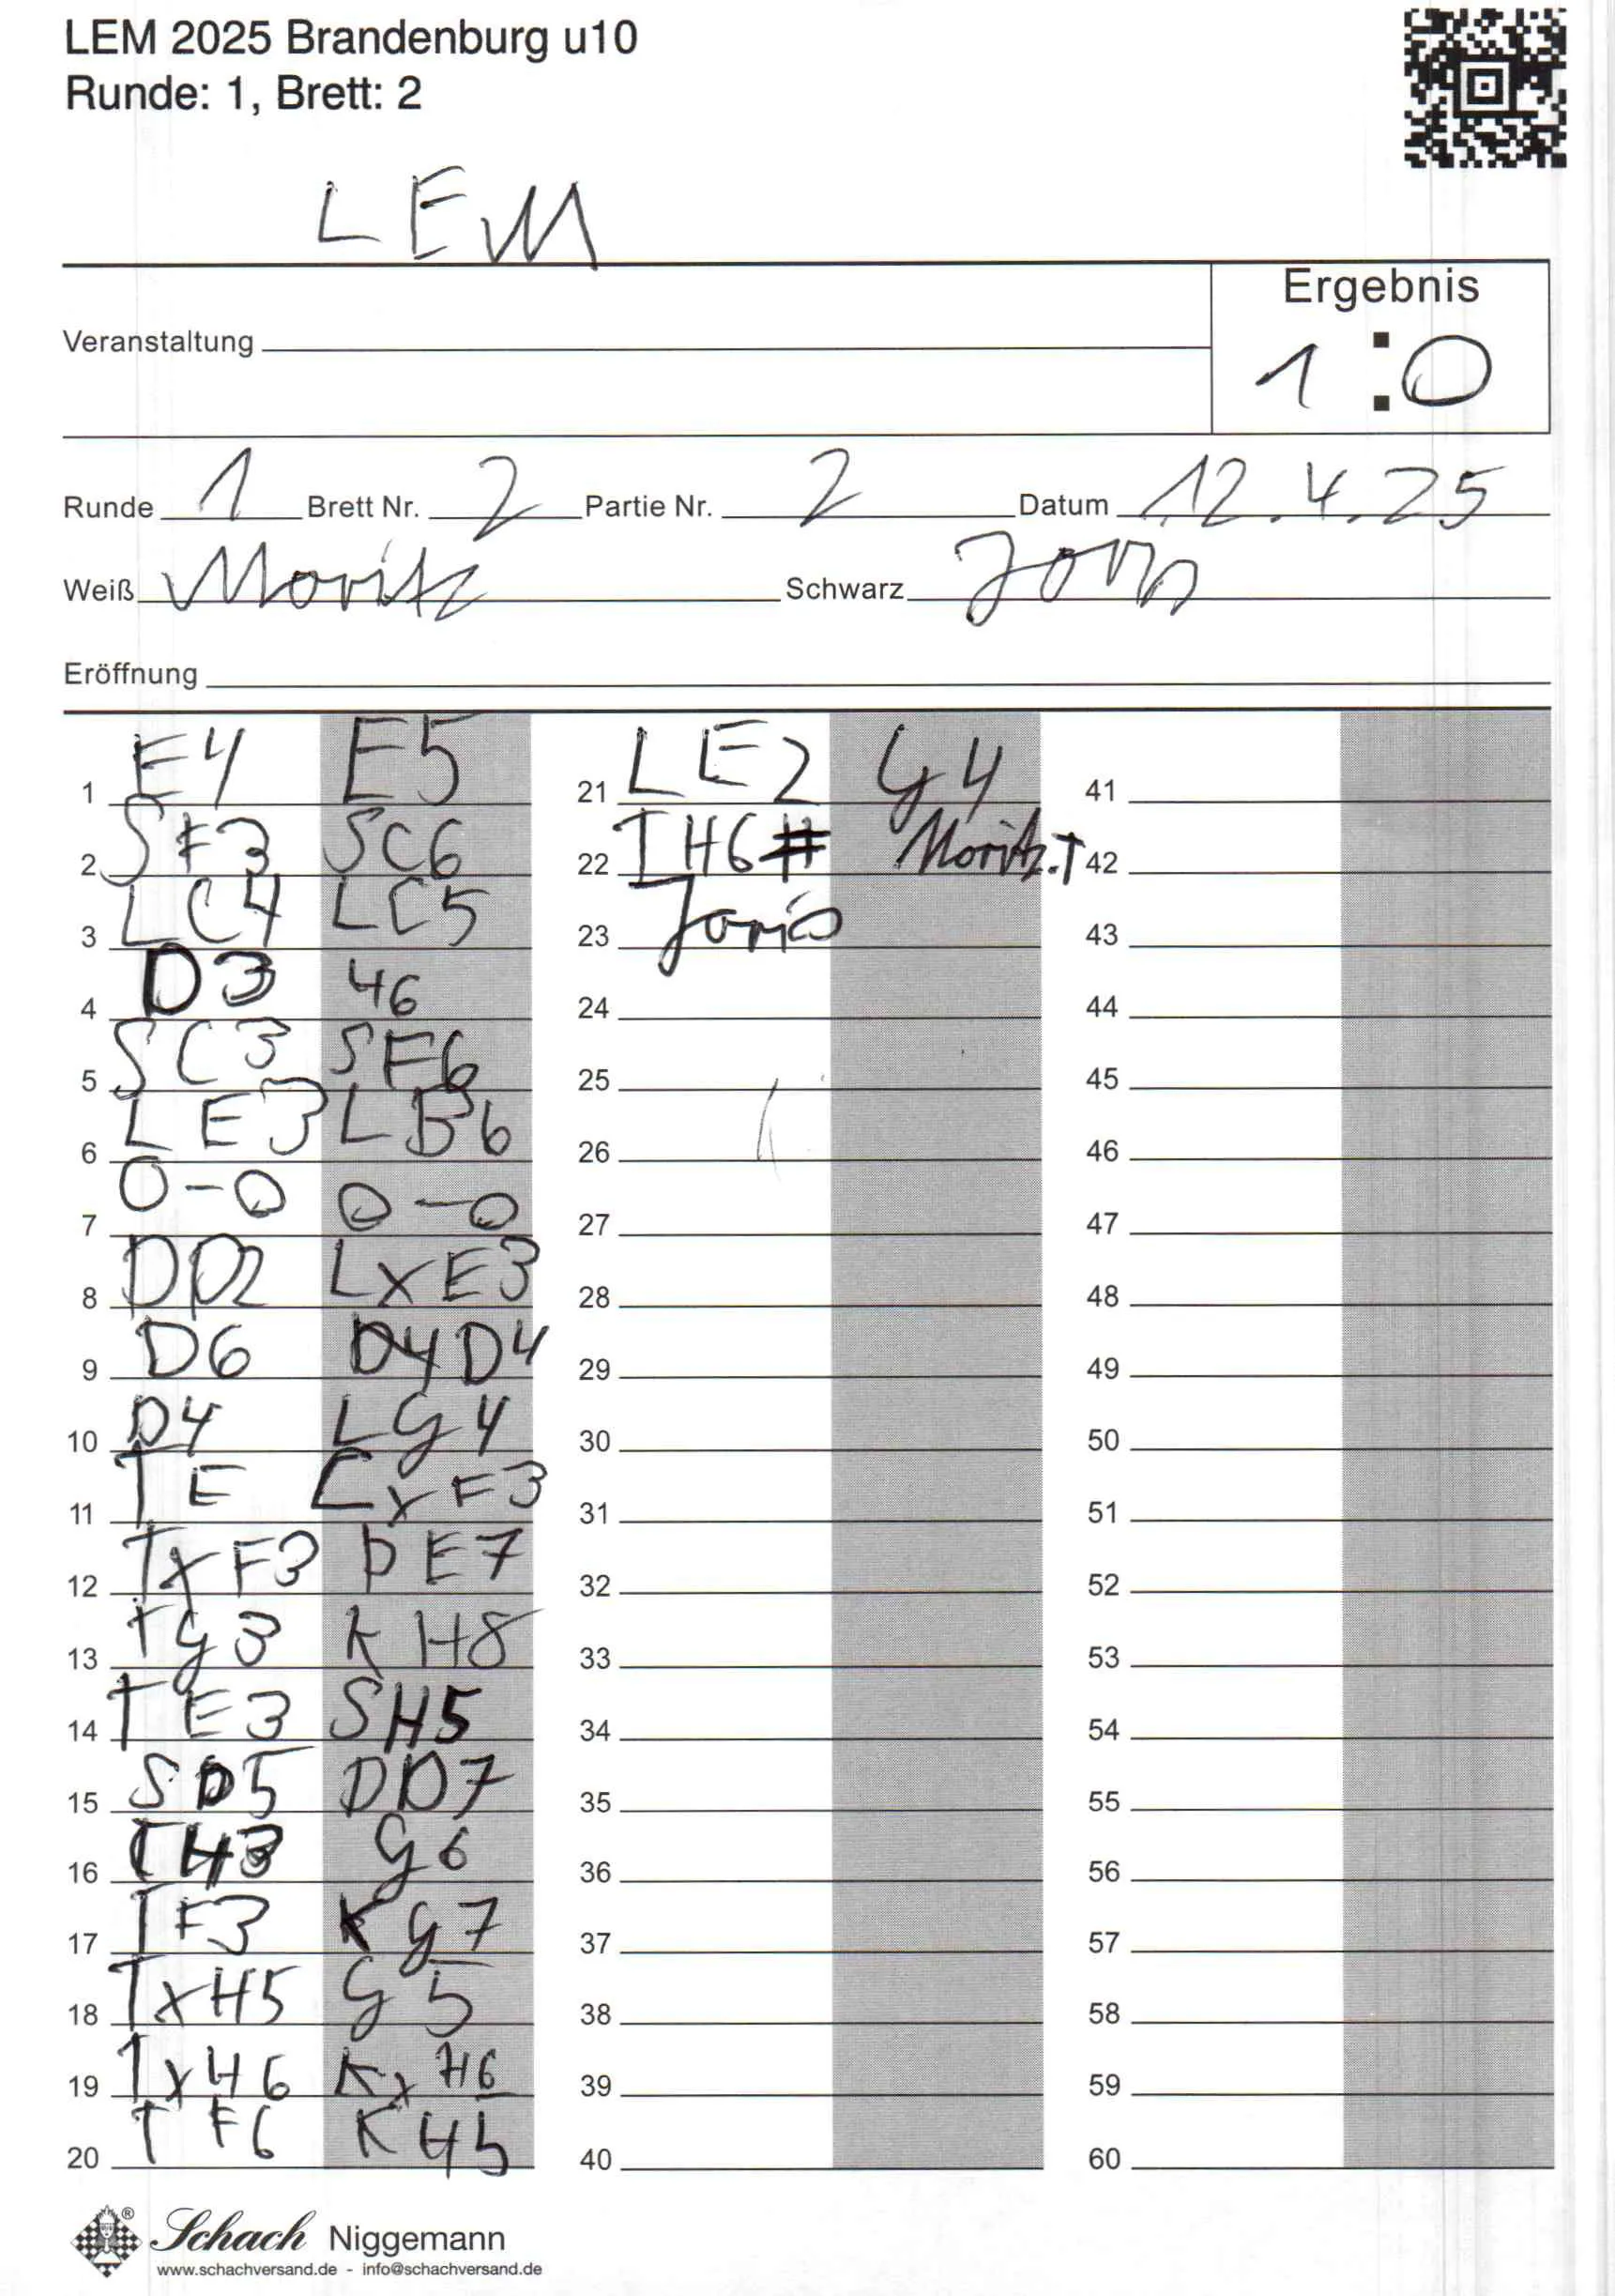 LEM 2025 Brandenburg u10
Runde: 1, Brett: 2
LEM
Ergebnis
Veranstaltung
1:0
Runde 1 Brett Nr. 2 Partie Nr. 2 Datum 12.4.25
Weiß Moritz Schwarz
Eröffnung
1 E4 E5
2 SF3 SC6
3 LC4 LC5
4 D3 46
5 SC3 SF6
6 LE3 LB6
7 0-0 0-0
8 DD2 LXE3
9 D6 D4D4
10 D4 LG4
11 TE LXF3
12 TXF3 DE7
13 TG3 KH8
14 TE3 SH5
15 SD5 DD7
16 TH3 G6
17 TF3 KG7
18 TXH5 G5
19 TXH6 KXH6
20 TF6 KH5
21 LE2 G4
22 TH6# Moritz.T
23 Joris
24
25
26
27
28
29
30
31
32
33
34
35
36
37
38
39
40
41
42
43
44
45
46
47
48
49
50
51
52
53
54
55
56
57
58
59
60
Schach Niggemann
www.schachversand.de - info@schachversand.de